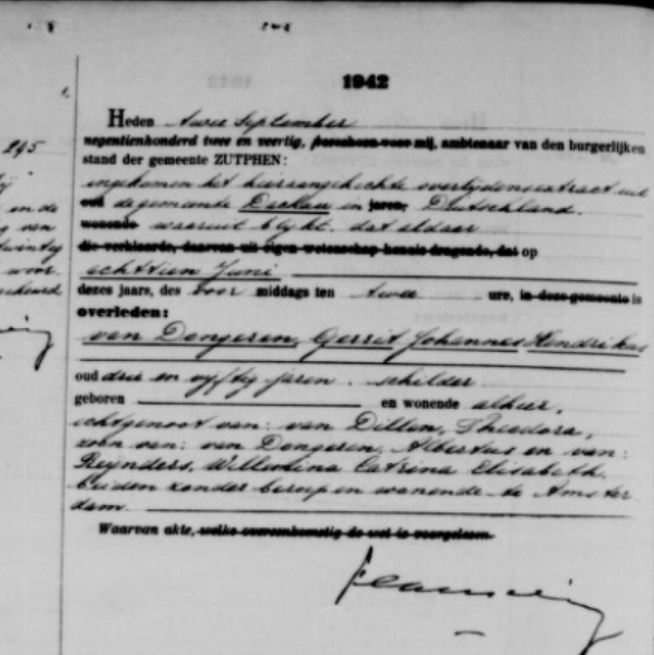 1942
245
Heden twee September
negentienhonderd twee en veertig, verscheen voor mij, ambtenaar van den burgerlijken
stand der gemeente ZUTPHEN:
ingekomen het hieraangehechte overlijdensextract uit
oud de gemeente Dachau in jaren, Duitschland,
wonende waaruit blijkt dat aldaar
die verklaarde, daarvan uit eigen wetenschap kennis dragende, dat op
achttien Juni
dezes jaars, des voor middags ten twee ure, in deze gemeente is
overleden:
van Dongeren, Gerrit Johannes Hendrikus
oud drie en vyftig jaren. schilder
geboren en wonende alhier,
echtgenoot van: van Dillen, Theodora,
zoon van: van Dongeren, Albertus en van:
Reynders, Willemina Catrina Elisabeth.
beiden zonder beroep en wonende te Amster
dam.
Waarvan akte, welke overeenkomstig de wet is voorgelezen.